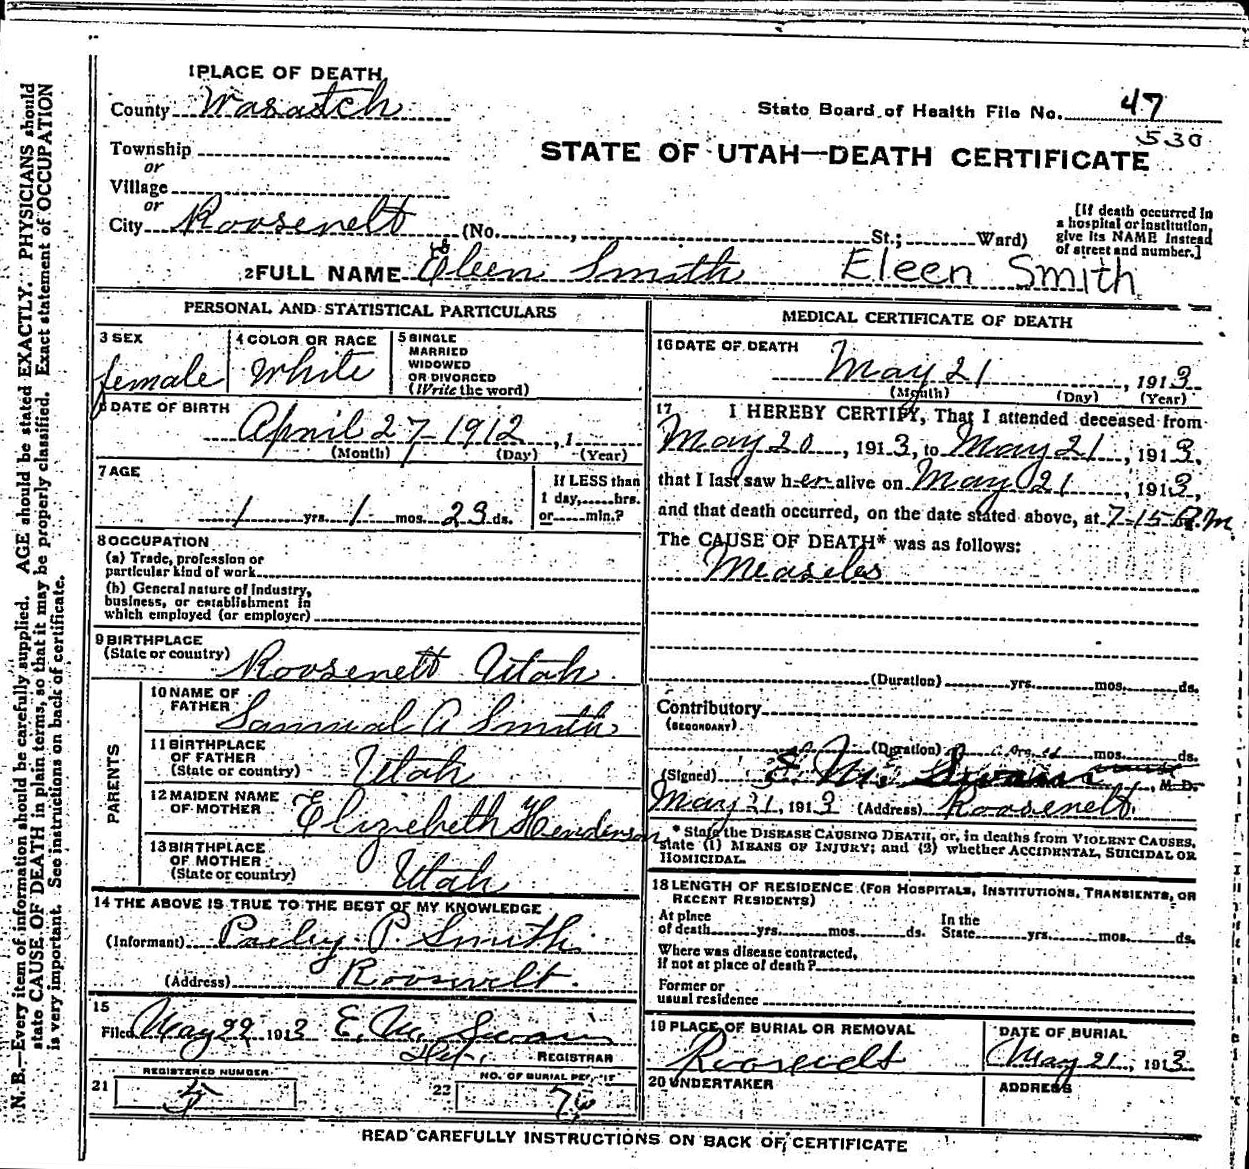 1 PLACE OF DEATH
County Wasatch
State Board of Health File No. 47
530
Township
or
Village
or
STATE OF UTAH—DEATH CERTIFICATE
City Roosevelt (No. , St.; Ward)
[If death occurred in
a hospital or institution,
give its NAME instead
of street and number.]
2 FULL NAME Eleen Smith Eleen Smith
PERSONAL AND STATISTICAL PARTICULARS
3 SEX
female
4 COLOR OR RACE
White
5 SINGLE
MARRIED
WIDOWED
OR DIVORCED
(Write the word)
6 DATE OF BIRTH
April 27-1912 , 1
(Month) (Day) (Year)
7 AGE
1 yrs. 1 mos. 23 ds.
If LESS than
1 day, hrs.
or min.?
8 OCCUPATION
(a) Trade, profession or
particular kind of work
(b) General nature of industry,
business, or establishment in
which employed (or employer)
9 BIRTHPLACE
(State or country) Roosevelt Utah
PARENTS
10 NAME OF
FATHER Samual A Smith
11 BIRTHPLACE
OF FATHER
(State or country) Utah
12 MAIDEN NAME
OF MOTHER Elizebeth Henderson
13 BIRTHPLACE
OF MOTHER
(State or country) Utah
14 THE ABOVE IS TRUE TO THE BEST OF MY KNOWLEDGE
(Informant) Parley P. Smith
(Address) Roosevelt
15
Filed May 22 1913 E. M. Swain
Dep. REGISTRAR
21 REGISTERED NUMBER
5
22 NO. OF BURIAL PERMIT
MEDICAL CERTIFICATE OF DEATH
16 DATE OF DEATH
May 21 , 1913
(Month) (Day) (Year)
17 I HEREBY CERTIFY, That I attended deceased from
May 20 , 1913, to May 21 , 1913,
that I last saw her alive on May 21 , 1913,
and that death occurred, on the date stated above, at 7-15 A.m
The CAUSE OF DEATH* was as follows:
Measeles
(Duration) yrs. mos. ds.
Contributory
(SECONDARY)
(Duration) yrs. mos. ds.
(Signed) E. M. Swain , M. D.
May 21, 1913 (Address) Roosevelt
* State the DISEASE CAUSING DEATH, or, in deaths from VIOLENT CAUSES,
state (1) MEANS OF INJURY; and (2) whether ACCIDENTAL, SUICIDAL OR
HOMICIDAL.
18 LENGTH OF RESIDENCE (FOR HOSPITALS, INSTITUTIONS, TRANSIENTS, OR
RECENT RESIDENTS)
At place
of death yrs. mos. ds.
In the
State yrs. mos. ds.
Where was disease contracted,
if not at place of death?
Former or
usual residence
19 PLACE OF BURIAL OR REMOVAL
Roosevelt
DATE OF BURIAL
May 21, 1913
20 UNDERTAKER
ADDRESS
READ CAREFULLY INSTRUCTIONS ON BACK OF CERTIFICATE
N. B.—Every item of information should be carefully supplied. AGE should be stated EXACTLY. PHYSICIANS should
state CAUSE OF DEATH in plain terms, so that it may be properly classified. Exact statement of OCCUPATION
is very important. See instructions on back of certificate.